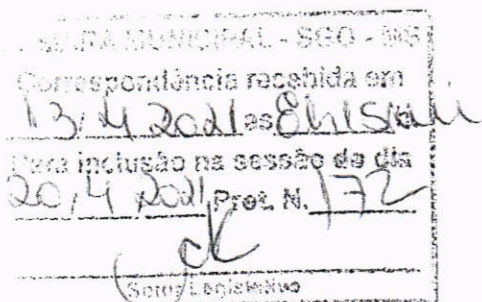 CÂMARA MUNICIPAL - SGO - MS
Correspondência recebida em
13/4 2021 as 8h15
Para inclusão na sessão do dia
20/4 2021 Prot. N. 172
Setor Legislativo